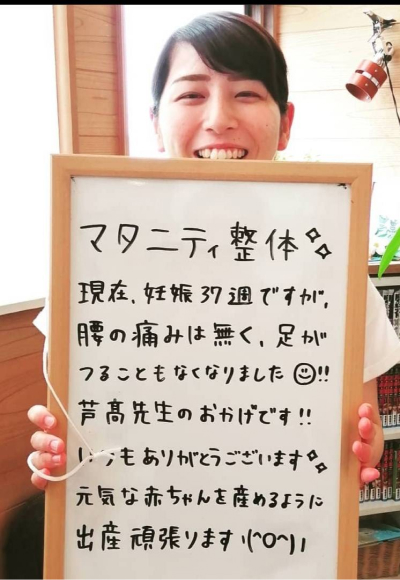 マタニティ整体✧✧
現在、妊娠37週ですが、
腰の痛みは無く、足が
つることもなくなりました☺!!
芦髙先生のおかげです!!
いつもありがとうございます✧✧
元気な赤ちゃんを産めるように
出産頑張ります\(^O^)/